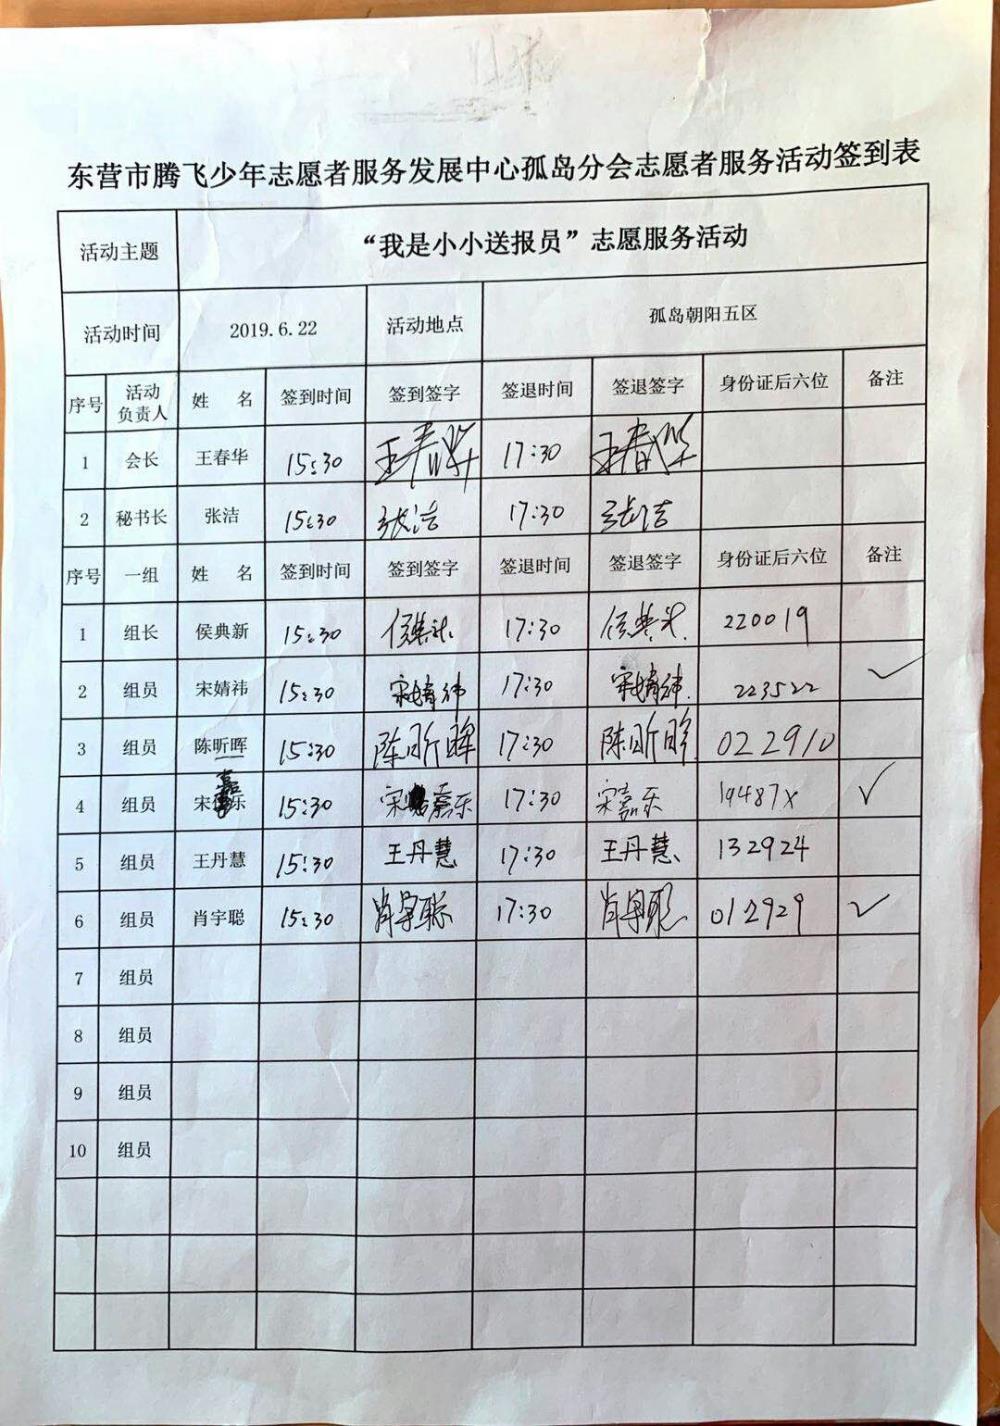 东营市腾飞少年志愿者服务发展中心孤岛分会志愿者服务活动签到表
活动主题 “我是小小送报员”志愿服务活动
活动时间 2019.6.22 活动地点 孤岛朝阳五区
序号 活动负责人 姓 名 签到时间 签到签字 签退时间 签退签字 身份证后六位 备注
1 会长 王春华 15:30 王春华 17:30 王春华
2 秘书长 张洁 15:30 张洁 17:30 张洁
序号 一组 姓 名 签到时间 签到签字 签退时间 签退签字 身份证后六位 备注
1 组长 侯典新 15:30 侯典新 17:30 侯典新 220019
2 组员 宋婧祎 15:30 宋婧祎 17:30 宋婧祎 223522 ✓
3 组员 陈昕晖 15:30 陈昕晖 17:30 陈昕晖 022910
4 组员 宋嘉乐 15:30 宋嘉乐 17:30 宋嘉乐 19487X ✓
5 组员 王丹慧 15:30 王丹慧 17:30 王丹慧 132924
6 组员 肖宇聪 15:30 肖宇聪 17:30 肖宇聪 012929 ✓
7 组员
8 组员
9 组员
10 组员